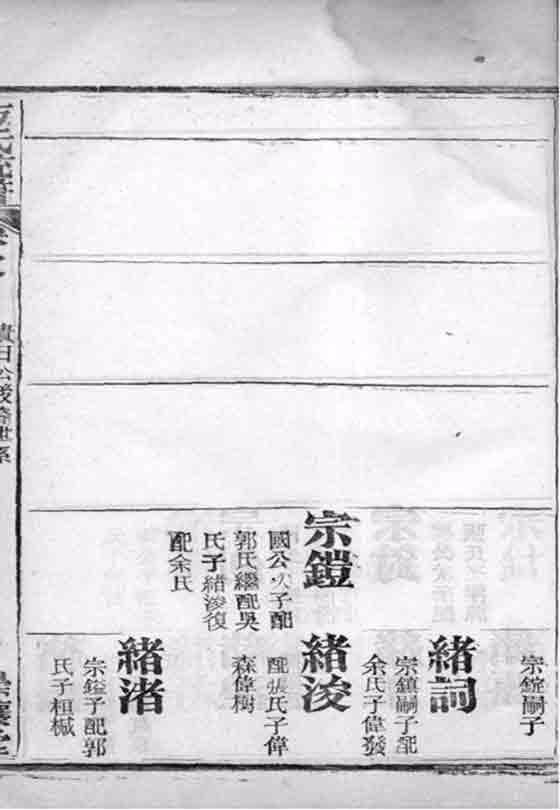 宗鎧
國公次子配
郭氏繼配吳
氏子緒浚復
配余氏
宗錠嗣子
緒詞
宗鎮嗣子配
余氏子偉發
緒浚
配張氏子偉
森偉樹
緒渚
宗鎰子配郭
氏子桓棫